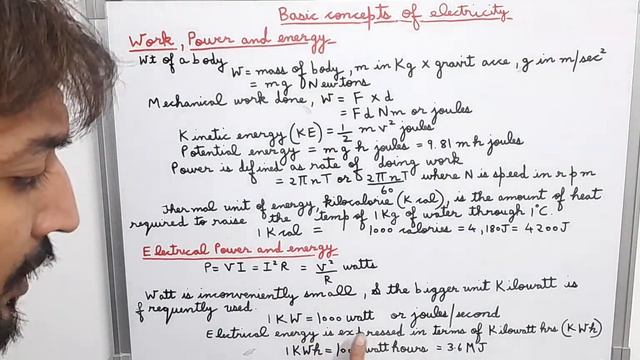 Basic concepts of electricity
Work, Power and energy
Wt of a body W = mass of body, m in Kg x gravit acce, g in m/sec²
= mg Newtons
Mechanical work done, W = F x d
= Fd Nm or joules
Kinetic energy (KE) = 1/2 m v² joules
Potential energy = m g h joules = 9.81 m h joules
Power is defined as rate of doing work
= 2πnT or 2πnT/60 where N is speed in rpm
Thermal unit of energy, kilocalorie (K cal), is the amount of heat
required to raise the temp of 1 Kg of water through 1°C.
1 Kcal = 1000 calories = 4,180J = 4200J
Electrical Power and energy
P = VI = I²R = V²/R watts
Watt is inconveniently small, & the bigger unit Kilowatt is
frequently used.
1 KW = 1000 watt or joules/second
Electrical energy is expressed in terms of Kilowatt hrs (KWh)
1 KWh = 1000 watt hours = 3.6 MJ